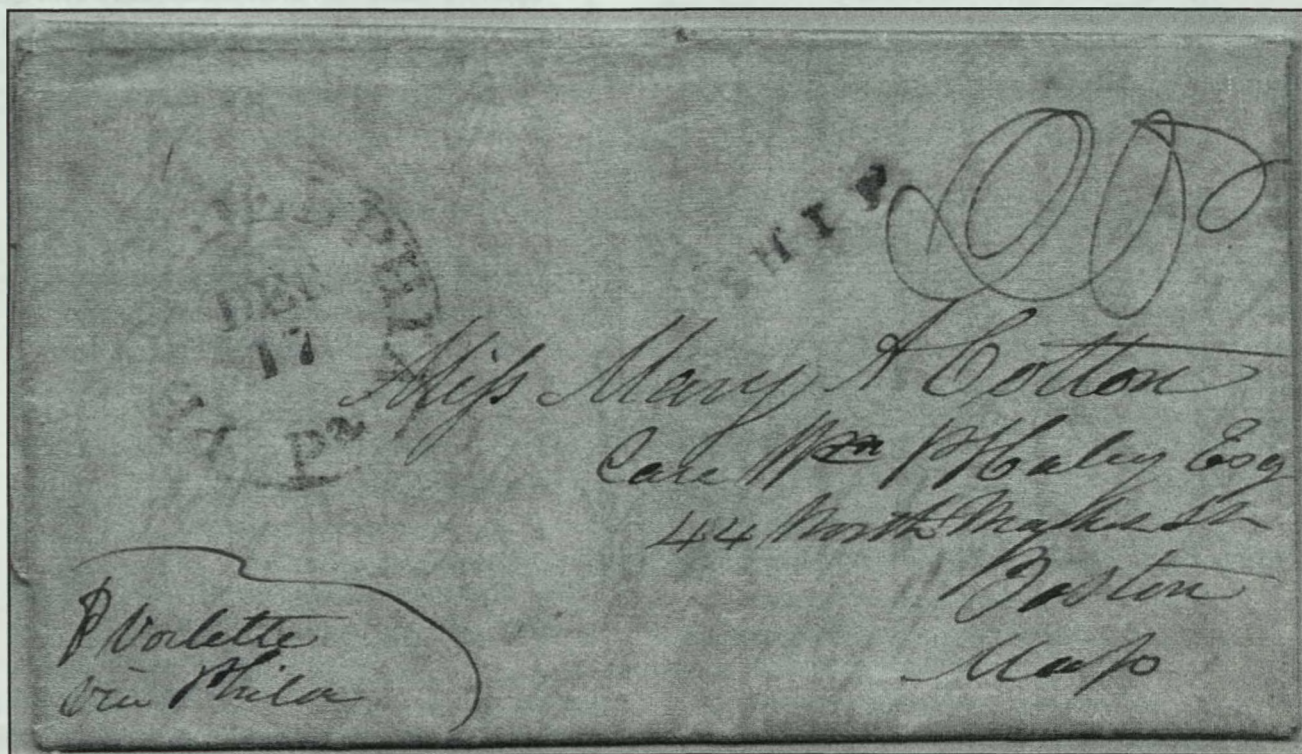 DELPHIA
DEC
17
Pa
SHIP
Miſs Mary A Cotton
Care Wm P Haley Esq
44 North Market St
Boston
Maſs
P Vorlette
via Phila